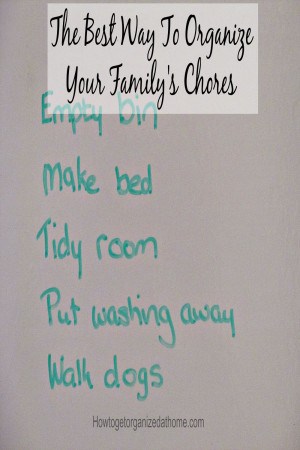 The Best Way To Organize
Your Family's Chores
Empty bin
Make bed
Tidy room
Put washing away
Walk dogs
Howtogetorganizedathome.com